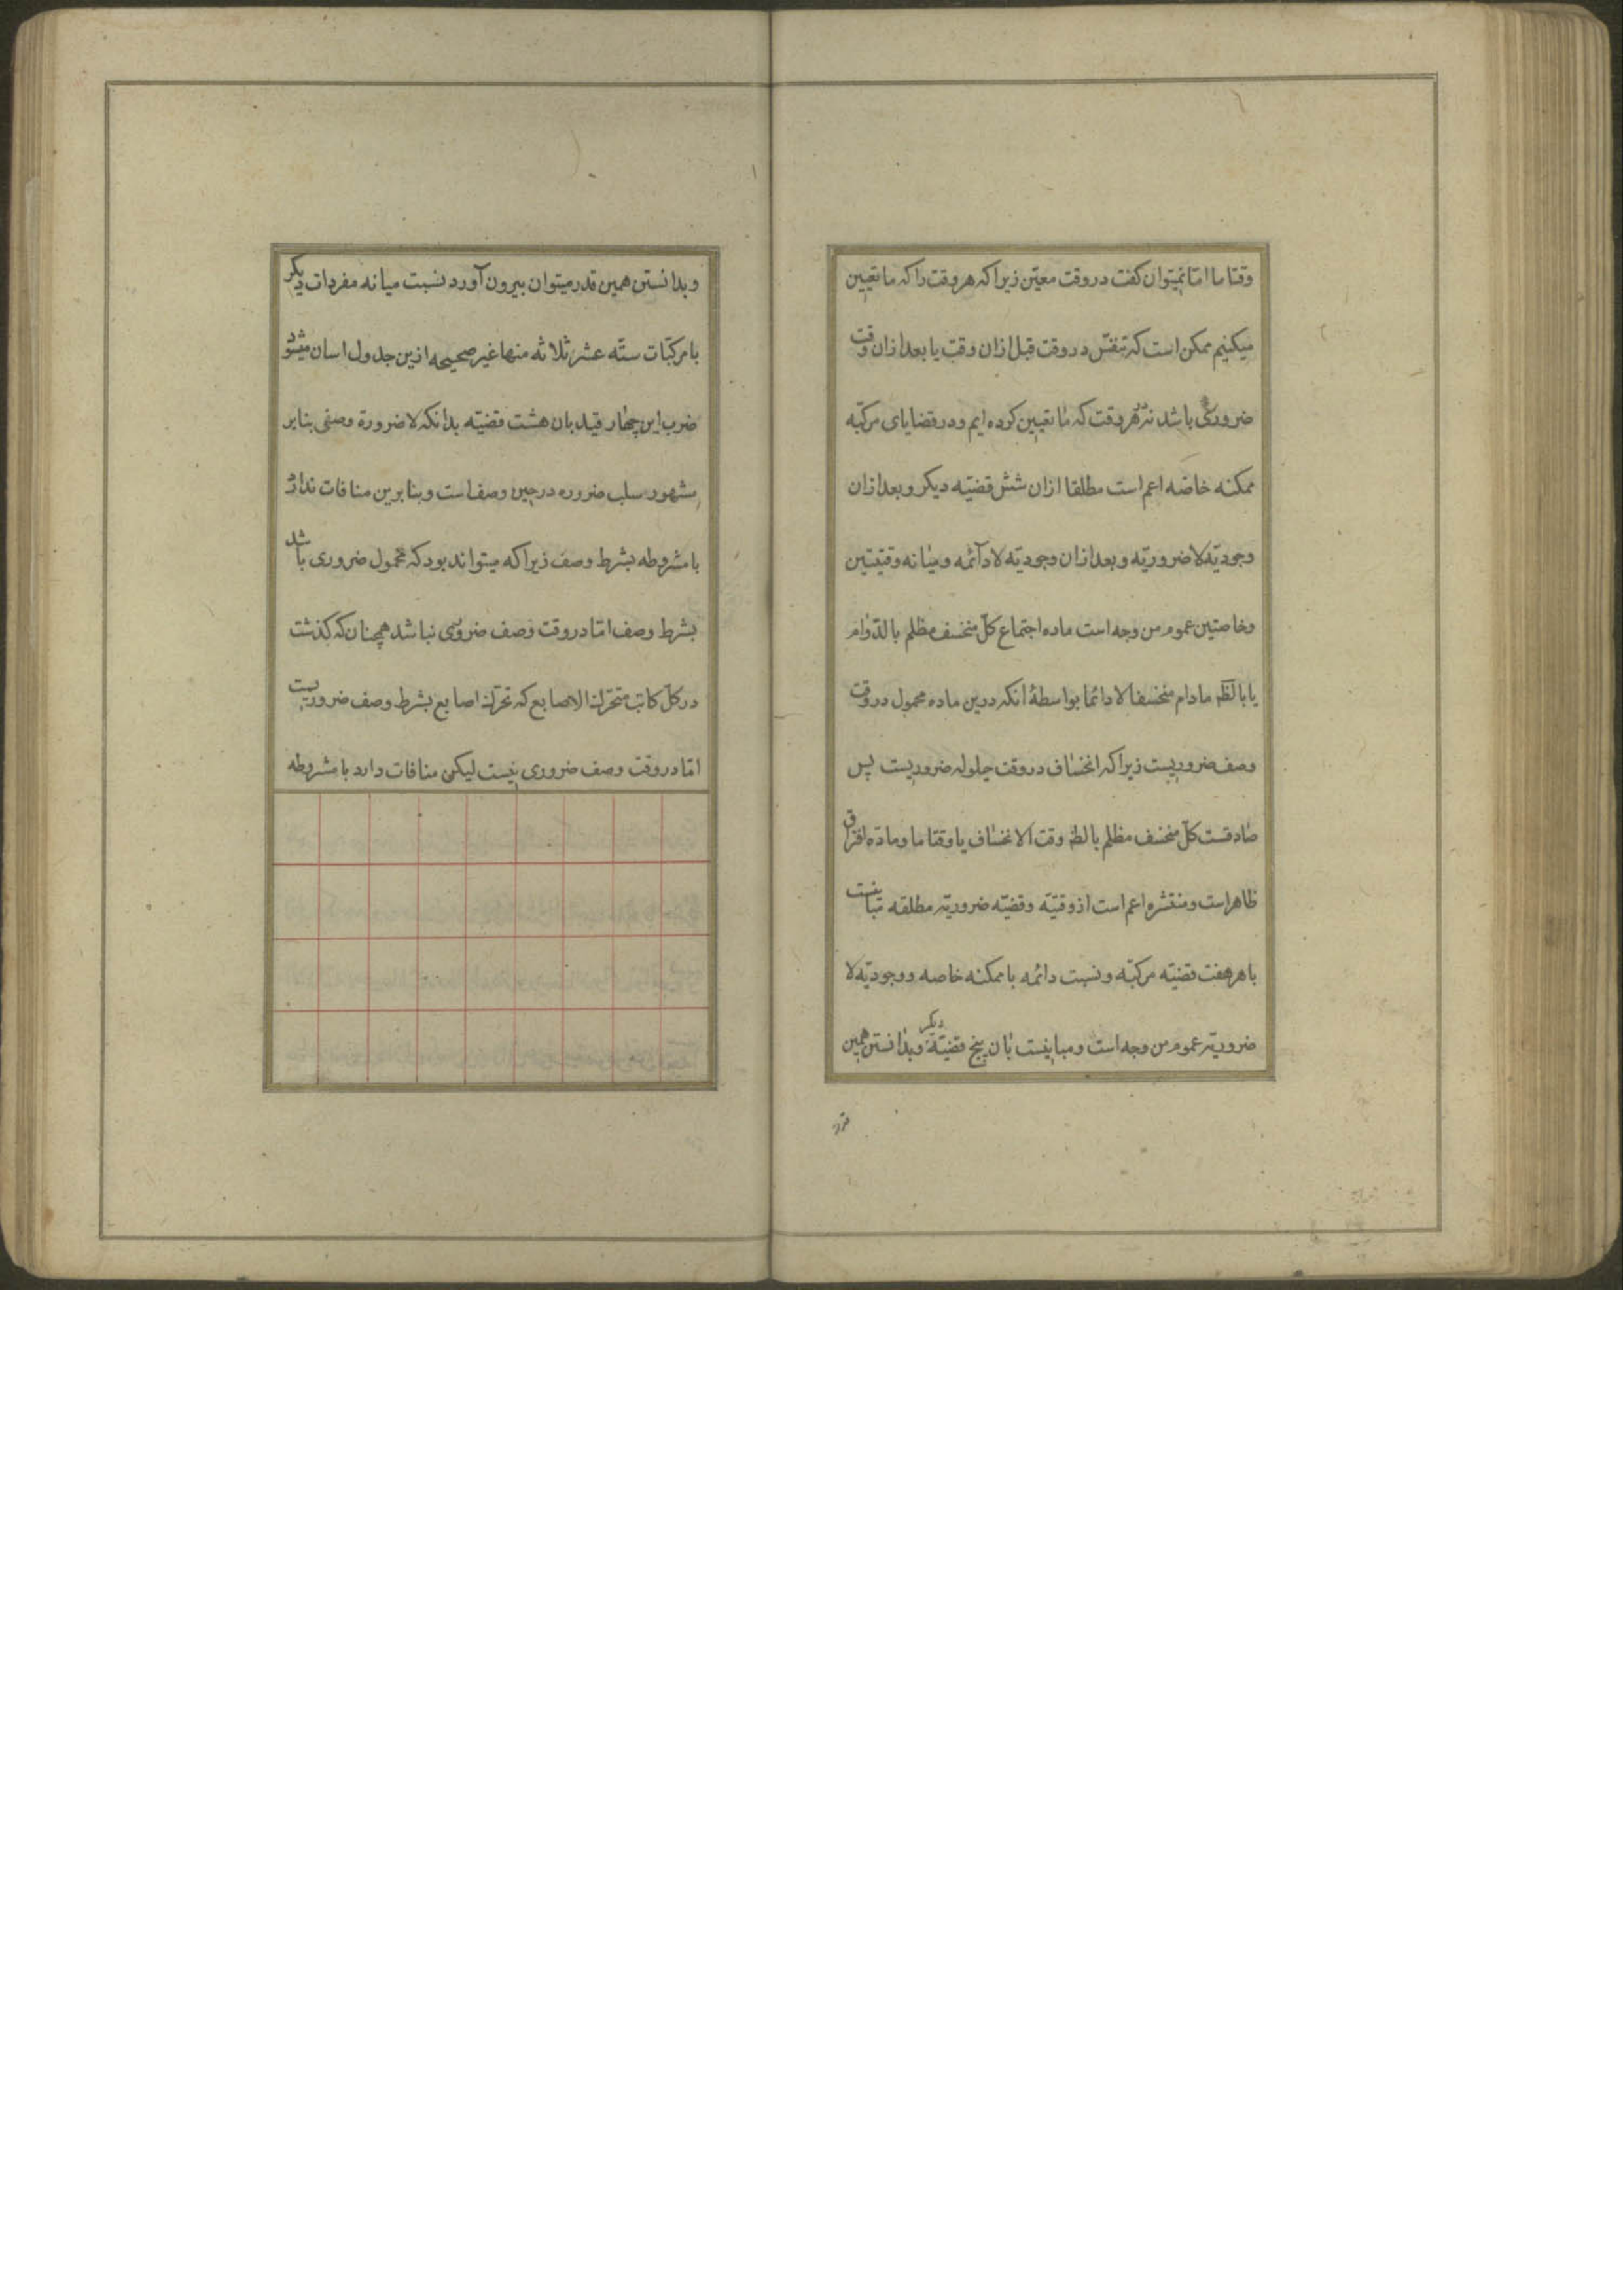 وقتا ما اما نمیتوان کفت در وقت معیّن زیرا که هر وقت را که ما تعیین
میکنیم ممکن است که تنفس در وقت قبل ازان وقت یا بعد ازان وقت
ضروری باشد نه در هر وقت که ما تعیین کرده ایم و در قضایای مرکبّه
ممکنه خاصّه اعم است مطلقا ازان شش قضیّه دیکر و بعد ازان
وجودیّه لا ضروریّه و بعد ازان وجودیّه لا دآئمه و میانه وقتیّتین
و خاصتین عموم من وجه است ماده اجتماع کلّ منخسف مظلم بالدّوام
یا بالضّ مادام منخسفا لا دائما بواسطهٔ انکه درین ماده محمول در وقت
وصف ضروریست زیرا که انخساف در وقت حیلوله ضروریست پس
صادقست کلّ منخسف مظلم بالضّ وقت الانخساف یا وقتا ما و مادّه افتراق
ظاهر است و منتشره اعم است از وقتیّه و قضیّه ضروریّه مطلقه مباینست
با هر هفت قضیّه مرکبّه و نسبت دائمه با ممکنه خاصه و وجودیّه لا
ضروریّه عموم من وجه است و مباینست بان پنج قضیّه دیکر و بدانستن همین
قدر
و بدانستن همین قدر میتوان بیرون آورد نسبت میانه مفردات دیکر
با مرکبّات ستّه عشر ثلاثه منها غیر صحیحه ازین جدول اسان میشود
ضرب این چهار قید بان هشت قضیّه بدانکه لا ضرورة وصفی بنابر
مشهور سلب ضروره در حین وصف است و بنابرین منافات ندارد
با مشروطه بشرط وصف زیرا که میتواند بود که محمول ضروری باشد
بشرط وصف امّا در وقت وصف ضروری نباشد همچنان که کذشت
در کلّ کاتب متحرّك الاصابع که تحرّك اصابع بشرط وصف ضروریست
امّا در وقت وصف ضروری نیست لیکن منافات دارد با مشروطه